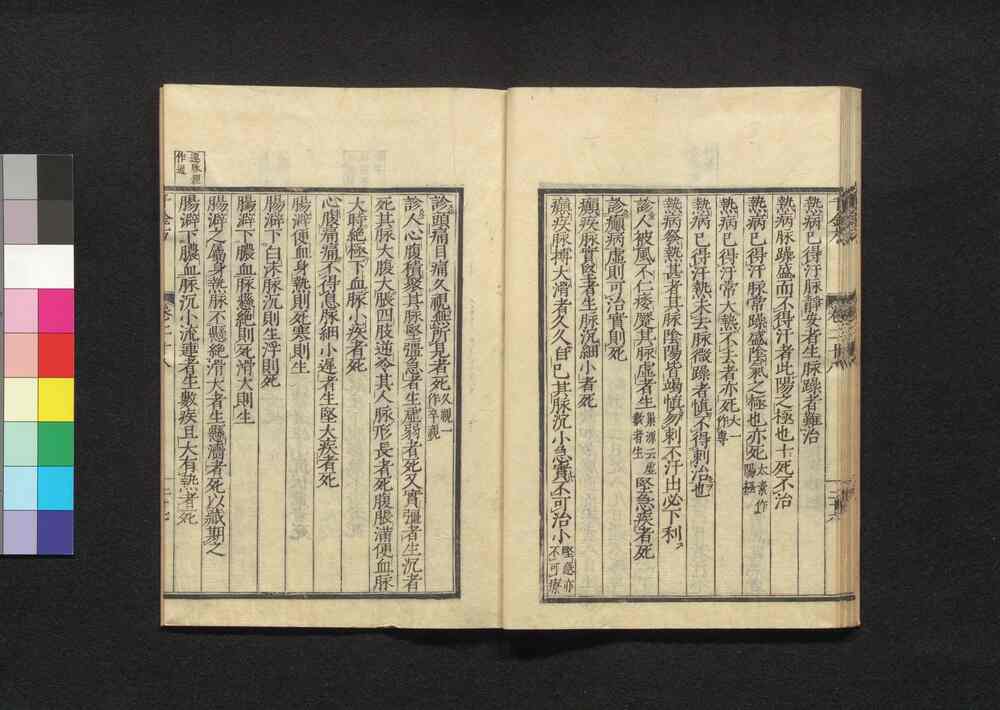 熱病已得汗脉靜安者生脉躁者難治
熱病脉躁盛而不得汗者此陽之極也十死不治
熱病已得汗脉常躁盛陰氣之極也亦死太素作陽極
熱病已得汗常大熱不去者亦死大一作專
熱病已得汗熱未去脉微躁者慎不得刺治也
熱病發熱甚者其脉陰陽皆竭慎勿刺不汗出必下利
診人被風不仁痿蹷其脉虛者生巢源云虛數者生堅急疾者死
診癲病虛則可治實則死
癲疾脉實堅者生脉沉細小者死
癲疾脉搏大滑者久久自已其脉沉小急實不可治小堅急亦不可療
診頭痛目痛久視無所見者死久視作卒視
診人心腹積聚其脉堅彊急者生虛弱者死又實彊者生沉者
死其脉大腹大脹四肢逆冷其人脉形長者死腹脹滿便血脉
大時絶極下血脉小疾者死
心腹痛痛不得息脉細小遲者生堅大疾者死
腸澼便血身熱則死寒則生
腸澼下白沫脉沉則生浮則死
腸澼下膿血脉懸絶則死滑大則生
腸澼之屬身熱脉不懸絶滑大者生懸濇者死以藏期之
腸澼下膿血脉沉小流連者生數疾且大有熱者死
卷二十八
二十七